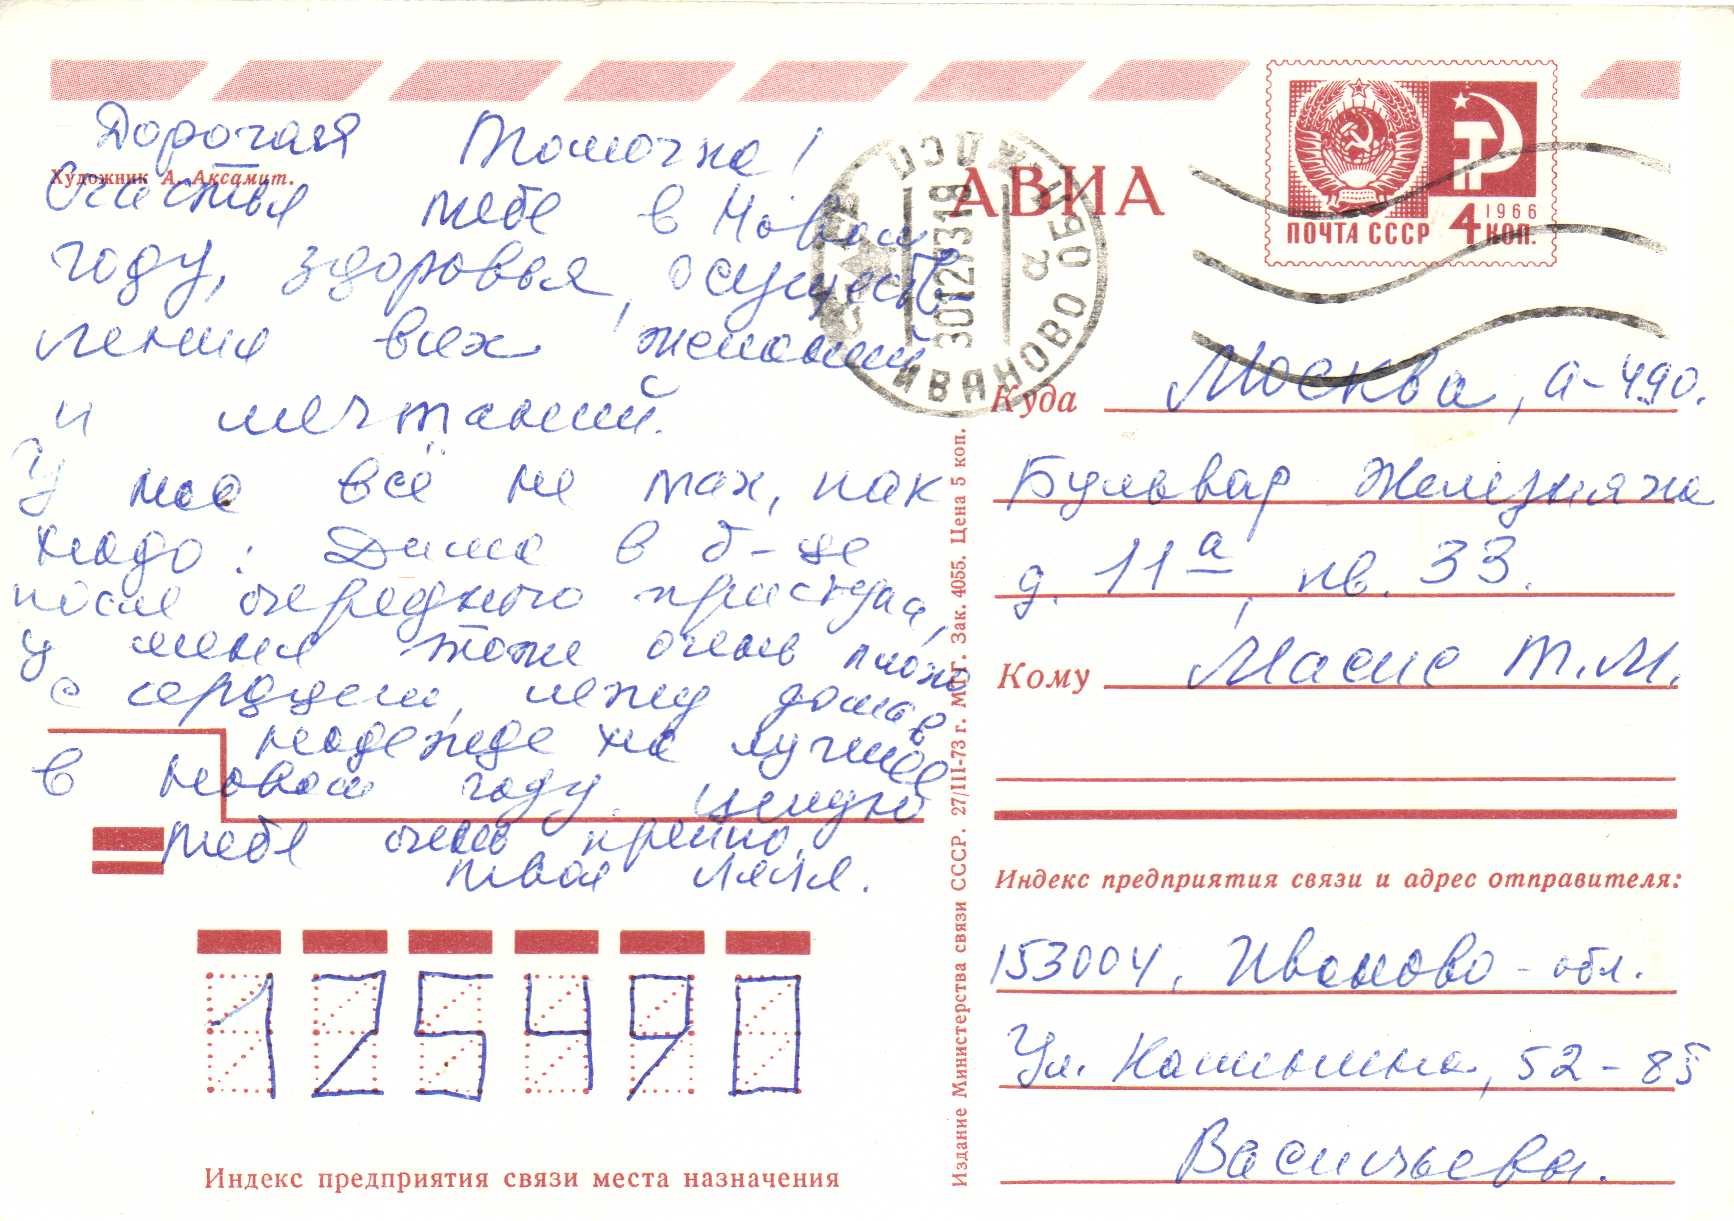 Дорогая Томочка!
Художник А. Аксамит.
Счастья тебе в Новом
году, здоровья, осуществ
ления всех желаний
и мечтаний.
У нас всё не так, как
надо: Дима в б-це
после очередного приступа,
у меня тоже очень плохо
с сердцем, лежу дома в
надежде на лучшее
в новом году. Целую
тебя очень крепко.
твоя Ляля.
125490
Индекс предприятия связи места назначения
АВИА
ИВАНОВО ОБЛ
301273 18
ПОЧТА СССР 4 КОП.
1966
Куда Москва, А-490.
Бульвар Железняка
д. 11а, кв. 33.
Кому Масис Т.М.
Индекс предприятия связи и адрес отправителя:
153004, Иваново - обл.
Ул. Калинина, 52-85
Васильева.
Издание Министерства связи СССР. 27/III-73 г. МПГ. Зак. 4055. Цена 5 коп.